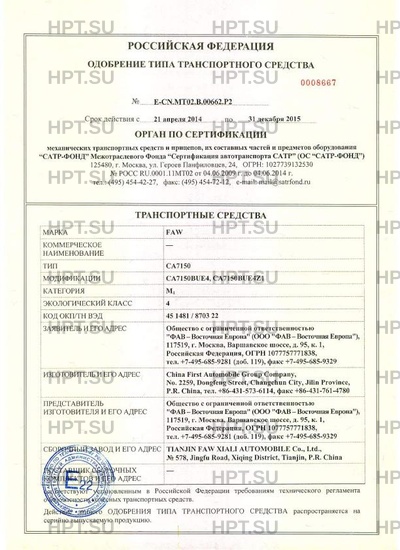 РОССИЙСКАЯ ФЕДЕРАЦИЯ
ОДОБРЕНИЕ ТИПА ТРАНСПОРТНОГО СРЕДСТВА
0008667
№ E-CN.MT02.B.00662.P2
Срок действия с 21 апреля 2014 по 31 декабря 2015
ОРГАН ПО СЕРТИФИКАЦИИ
механических транспортных средств и прицепов, их составных частей и предметов оборудования
“САТР-ФОНД” Межотраслевого Фонда “Сертификация автотранспорта САТР” (ОС “САТР-ФОНД”)
125480, г. Москва, ул. Героев Панфиловцев, 24, ОГРН: 1027739132530
№ РОСС RU.0001.11МТ02 от 04.06.2009 г. до 04.06.2014 г.
тел.: (495) 454-42-27, факс: (495) 454-72-12, e-mail: mail@satrfond.ru
ТРАНСПОРТНЫЕ СРЕДСТВА
МАРКА FAW
КОММЕРЧЕСКОЕ НАИМЕНОВАНИЕ —
ТИП CA7150
МОДИФИКАЦИИ CA7150BUE4, CA7150BUE4Z1
КАТЕГОРИЯ M₁
ЭКОЛОГИЧЕСКИЙ КЛАСС 4
КОД ОКП/ТН ВЭД 45 1481 / 8703 22
ЗАЯВИТЕЛЬ И ЕГО АДРЕС Общество с ограниченной ответственностью
“ФАВ – Восточная Европа” (ООО “ФАВ – Восточная Европа”),
117519, г. Москва, Варшавское шоссе, д. 95, к. 1,
Российская Федерация, ОГРН 1077757771838,
тел. +7-495-685-9281 (доб. 119), факс: +7-495-685-9329
ИЗГОТОВИТЕЛЬ И ЕГО АДРЕС China First Automobile Group Company,
No. 2259, Dongfeng Street, Changchun City, Jilin Province,
P.R. China, тел. +86-431-573-6114, факс +86-431-761-4780
ПРЕДСТАВИТЕЛЬ ИЗГОТОВИТЕЛЯ И ЕГО АДРЕС Общество с ограниченной ответственностью
“ФАВ – Восточная Европа” (ООО “ФАВ – Восточная Европа”),
117519, г. Москва, Варшавское шоссе, д. 95, к. 1,
Российская Федерация, ОГРН 1077757771838,
тел. +7-495-685-9281 (доб. 119), факс: +7-495-685-9329
СБОРОЧНЫЙ ЗАВОД И ЕГО АДРЕС TIANJIN FAW XIALI AUTOMOBILE Co., Ltd.,
№ 578, Jingfu Road, Xiqing District, Tianjin, P.R. China
ПОСТАВЩИК СБОРОЧНЫХ КОМПЛЕКТОВ И ЕГО АДРЕС —
E22
соответствуют установленным в Российской Федерации требованиям технического регламента
о безопасности колесных транспортных средств.
Действие данного ОДОБРЕНИЯ ТИПА ТРАНСПОРТНОГО СРЕДСТВА распространяется на
серийно выпускаемую продукцию.
HPT.SU